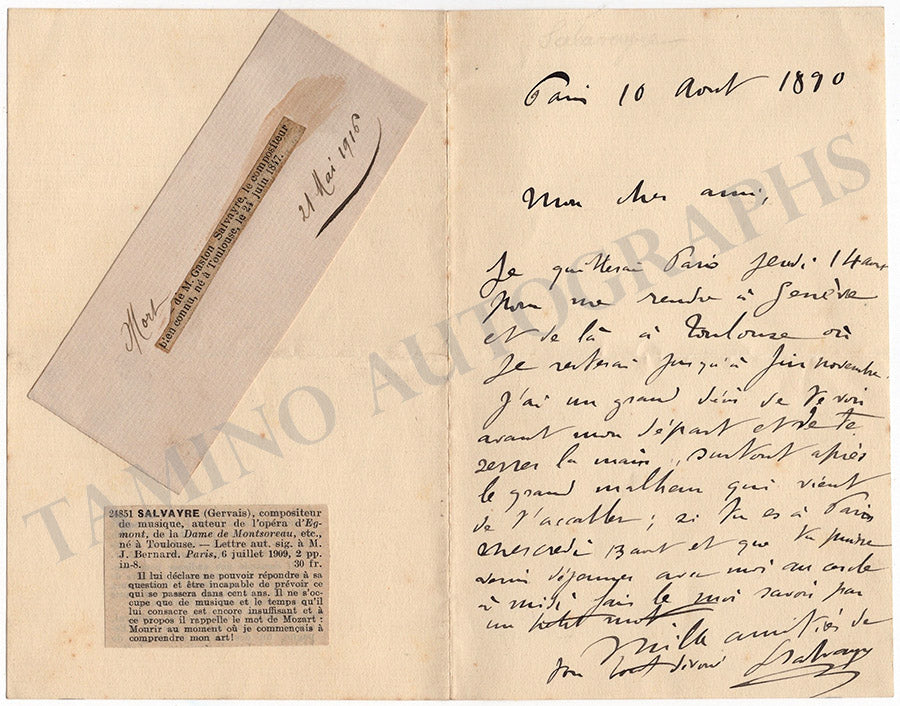 Mort de M. Gaston Salvayre, le compositeur
bien connu, né à Toulouse, le 24 juin 1847.
21 Mai 1916
24851 SALVAYRE (Gervais), compositeur
de musique, auteur de l'opéra d'Eg-
mont, de la Dame de Montsoreau, etc.,
né à Toulouse. — Lettre aut. sig. à M.
J. Bernard. Paris, 6 juillet 1909, 2 pp.
in-8. 30 fr.
Il lui déclare ne pouvoir répondre à sa
question et être incapable de prévoir ce
qui se passera dans cent ans. Il ne s'oc-
cupe que de musique et le temps qu'il
lui consacre est encore insuffisant et à
ce propos il rappelle le mot de Mozart :
Mourir au moment où je commençais à
comprendre mon art!
Salvayre
Paris 10 Aout 1890
Mon cher ami,
Je quitterai Paris Jeudi 14 aout
pour me rendre à Genève
et de là à Toulouse où
je resterai jusqu'à fin novembre.
J'ai un grand désir de te voir
avant mon départ et de te
serrer la main, surtout après
le grand malheur qui vient
de t'accabler ; si tu es à Paris
mercredi 13 aout et que tu puisses
venir déjeuner avec moi au cercle
à midi fais le moi savoir par
un petit mot
Mille amitiés de
ton tout dévoué
Salvayre
TAMINO AUTOGRAPHS